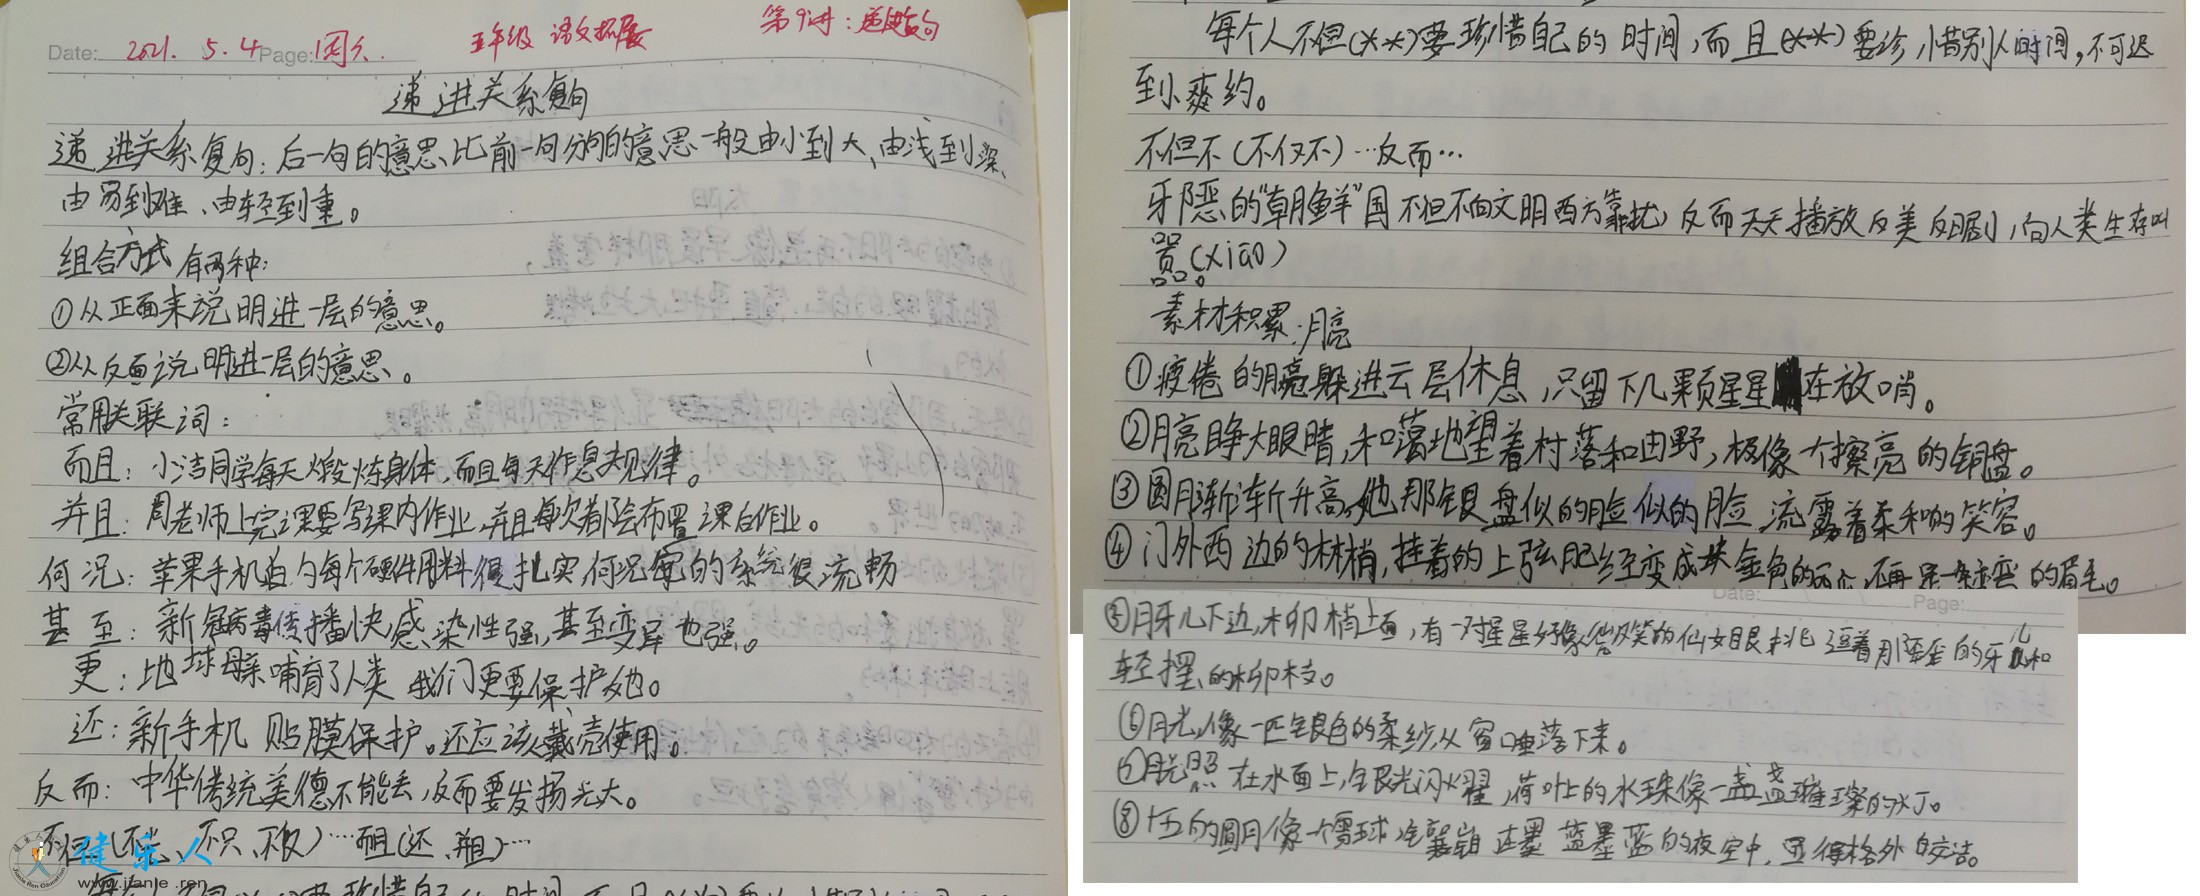 Date: 2021. 5. 4 Page: 周六.
五年级 语文拓展
第9讲:递进复句
递进关系复句
递进关系复句:后一句的意思比前一句分句的意思一般由小到大、由浅到深、
由易到难、由轻到重。
组合方式有两种:
①从正面来说明进一层的意思。
②从反面说明进一层的意思。
常用关联词:
而且:小洁同学每天火锻炼身体,而且每天作息规律。
并且:周老师上完课要写课内作业,并且每次都会布置课后作业。
何况:苹果手机的每个硬件用料很扎实,何况它的系统很流畅
甚至:新冠病毒传播快,感染性强,甚至变异也强。
更:地球母亲哺育了人类 我们更要保护她。
还:新手机 贴膜保护。还应该戴壳使用。
反而:中华传统美德不能丢,反而要发扬光大。
不但(不光、不只、不仅)……而且(还、并且)…
健乐人
www.jianle.ren
每个人不但(××)要珍惜自己的时间,而且(××)要珍惜别人时间,不可迟
到爽约。
不但不(不仅不)…反而…
牙恶的“朝鲜”国不但不向文明西方靠拢,反而天天播放反美反日剧,向人类生存叫
嚣(xiāo)。
素材积累:月亮
①疲倦的月亮躲进云层休息,只留下几颗星星在放哨。
②月亮睁大眼睛,和蔼地望着村落和田野,极像一个擦亮的铜盘。
③圆月渐渐升高,她那银盘似的脸似的脸,流露着柔和的笑容。
④门外西边的林梢,挂着的上弦月已经变成一块金色的,不再是一条弯弯的眉毛。
Date: Page:
⑤月牙儿下边,柳梢上面,有一对星星好像微笑的仙女眼,挑逗着那金的牙儿和
轻摆的柳枝。
⑥月光,像一匹银色的柔纱,从窗口垂落下来。
⑦月光照在水面上,银光闪耀,荷叶上的水珠像一盏盏璀璨的灯。
⑧十五的圆月像一个雪球,镶嵌在墨蓝墨蓝的夜空中,显得格外的皎洁。